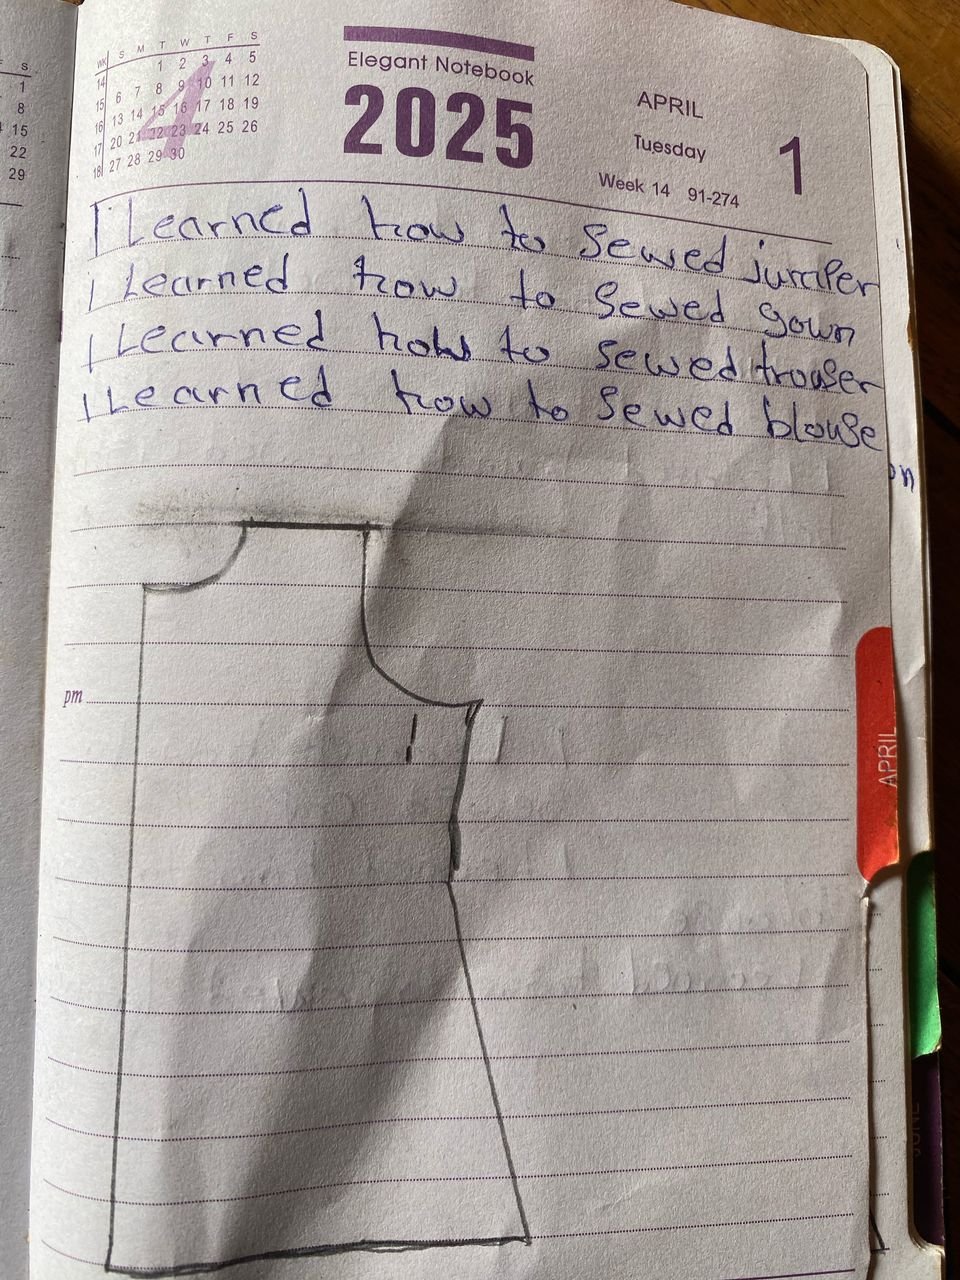 S
1
8
15
22
29
WK S M T W T F S
14 1 2 3 4 5
15 6 7 8 9 10 11 12
16 13 14 15 16 17 18 19
17 20 21 22 23 24 25 26
18 27 28 29 30
4
Elegant Notebook
2025
APRIL
Tuesday
1
Week 14 91-274
I Learned how to Sewed jumper
I Learned how to Sewed gown
I Learned how to sewed trouser
I Learned how to Sewed blouse
on
pm
APRIL
JUNE